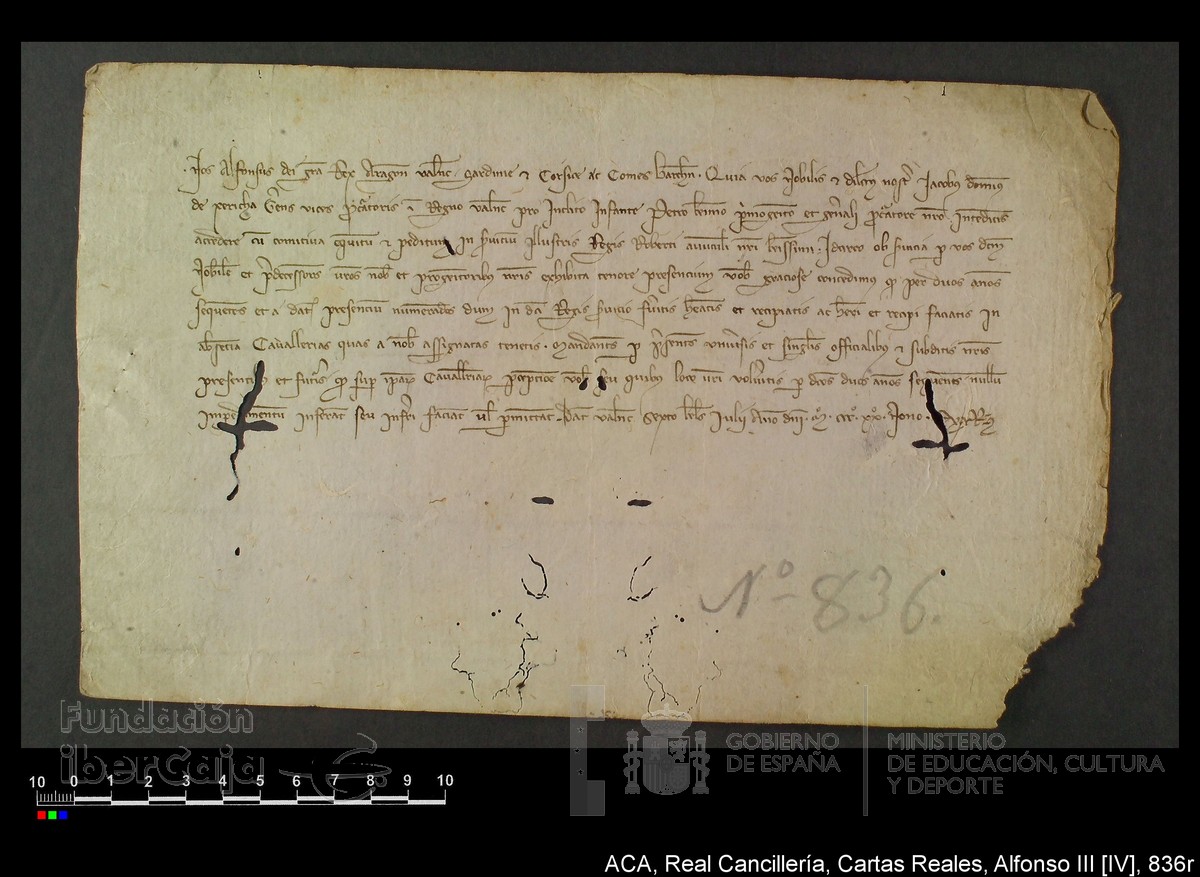 Nos Alfonsus dei gra Rex Aragon Valenc Sardinie et Corsice ac Comes Barchn. Quia vos Nobilis et dilcus nostr Jacobus dominus
de Xericha Gerens vices Procuratoris in Regno Valenc pro Inclito Infante Petro krmo primogenito et gnali procuratore nro. Intenditis
accedere cu comitiva equitu et peditum in serviciu Illustris Regis Roberti avunculi nri krissimi. Idcirco ob servicia p vos dcm
Nobile et predecessores vros nob et progenitoribus nris exhibita tenore presencium vob graciose concedimus qd per duos annos
sequentes et a dat presenciu numerandos dum in dci Regis servicio fueritis heatis et recipiatis ac heri et recipi faciatis in
absencia Cavallerias quas a nob assignatas tenetis. Mandantes p psentes universis et singlis officialibus et subditis nris
presentibus et futuris qd sup ipar Cavalleriar percepcione vob seu quibus loco vri volueritis p dcos duos annos sequentes nullu
impedimentu inferat seu inferri faciat vl permittat. Dat Valenc Sexto kls Julii Anno dni M CCC XX Nono.
Nº 836.
Fundación
iberCaja
GOBIERNO
DE ESPAÑA
MINISTERIO
DE EDUCACIÓN, CULTURA
Y DEPORTE
10 0 1 2 3 4 5 6 7 8 9 10
ACA, Real Cancillería, Cartas Reales, Alfonso III [IV], 836r